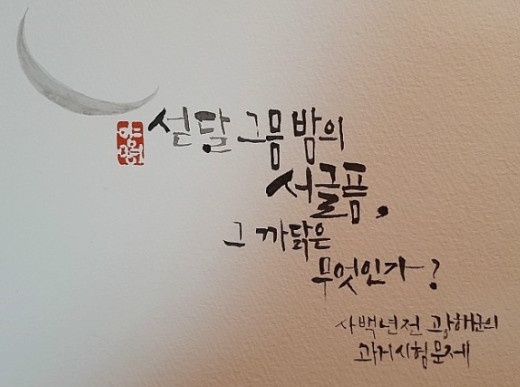 섣달 그믐 밤의
서글픔,
그 까닭은
무엇인가?
사백년전 광해군의
과거시험문제